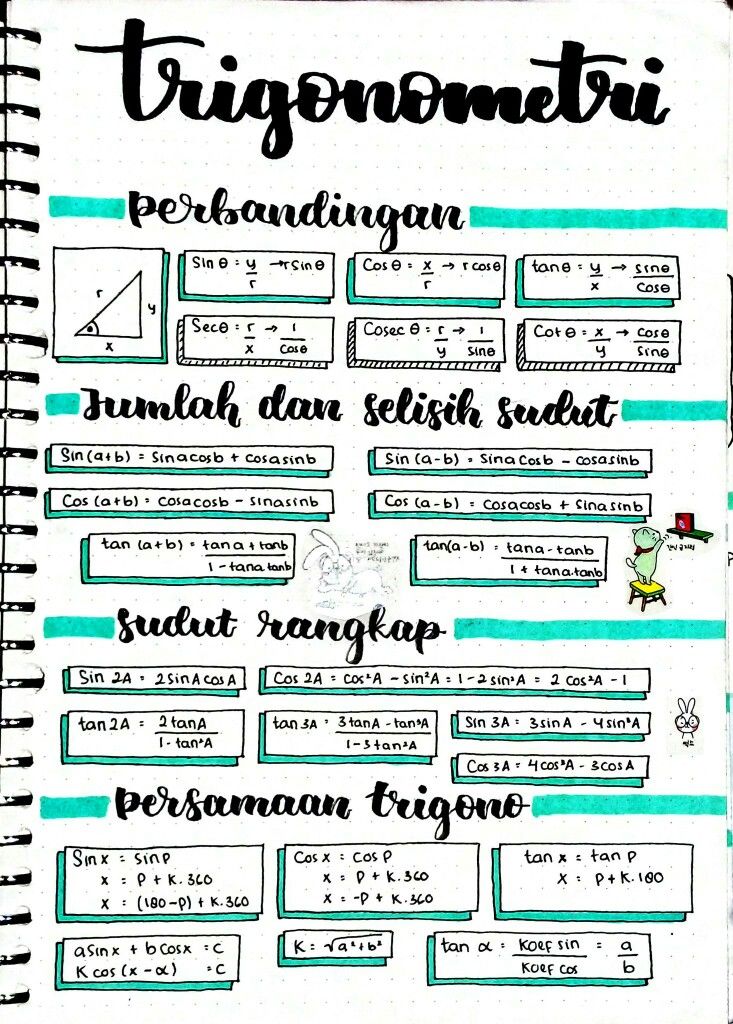 trigonometri
perbandingan
r
y
x
θ
Sin θ = y/r → r sin θ
Cos θ = x/r → r cos θ
tan θ = y/x → sin θ/cos θ
Sec θ = r/x → 1/cos θ
Cosec θ = r/y → 1/sin θ
Cot θ = x/y → cos θ/sin θ
Jumlah dan selisih sudut
Sin (a+b) = sin a cos b + cos a sin b
Sin (a-b) = sin a cos b - cos a sin b
Cos (a+b) = cos a cos b - sin a sin b
Cos (a-b) = cos a cos b + sin a sin b
tan (a+b) = tan a + tan b / 1 - tan a tan b
tan (a-b) = tan a - tan b / 1 + tan a.tan b
sudut rangkap
Sin 2A = 2 sin A cos A
Cos 2A = cos²A - sin²A = 1 - 2 sin²A = 2 cos²A - 1
tan 2A = 2 tan A / 1 - tan²A
tan 3A = 3 tan A - tan³A / 1 - 3 tan²A
Sin 3A = 3 sin A - 4 sin³A
Cos 3A = 4 cos³A - 3 cos A
persamaan trigono
Sin x = sin P
x = P + K.360
x = (180-P) + K.360
Cos x = cos P
x = P + K.360
x = -P + K.360
tan x = tan P
x = P + K.180
a sin x + b cos x = C
K cos (x - α) = C
K = √a² + b²
tan α = Koef sin / Koef cos = a/b